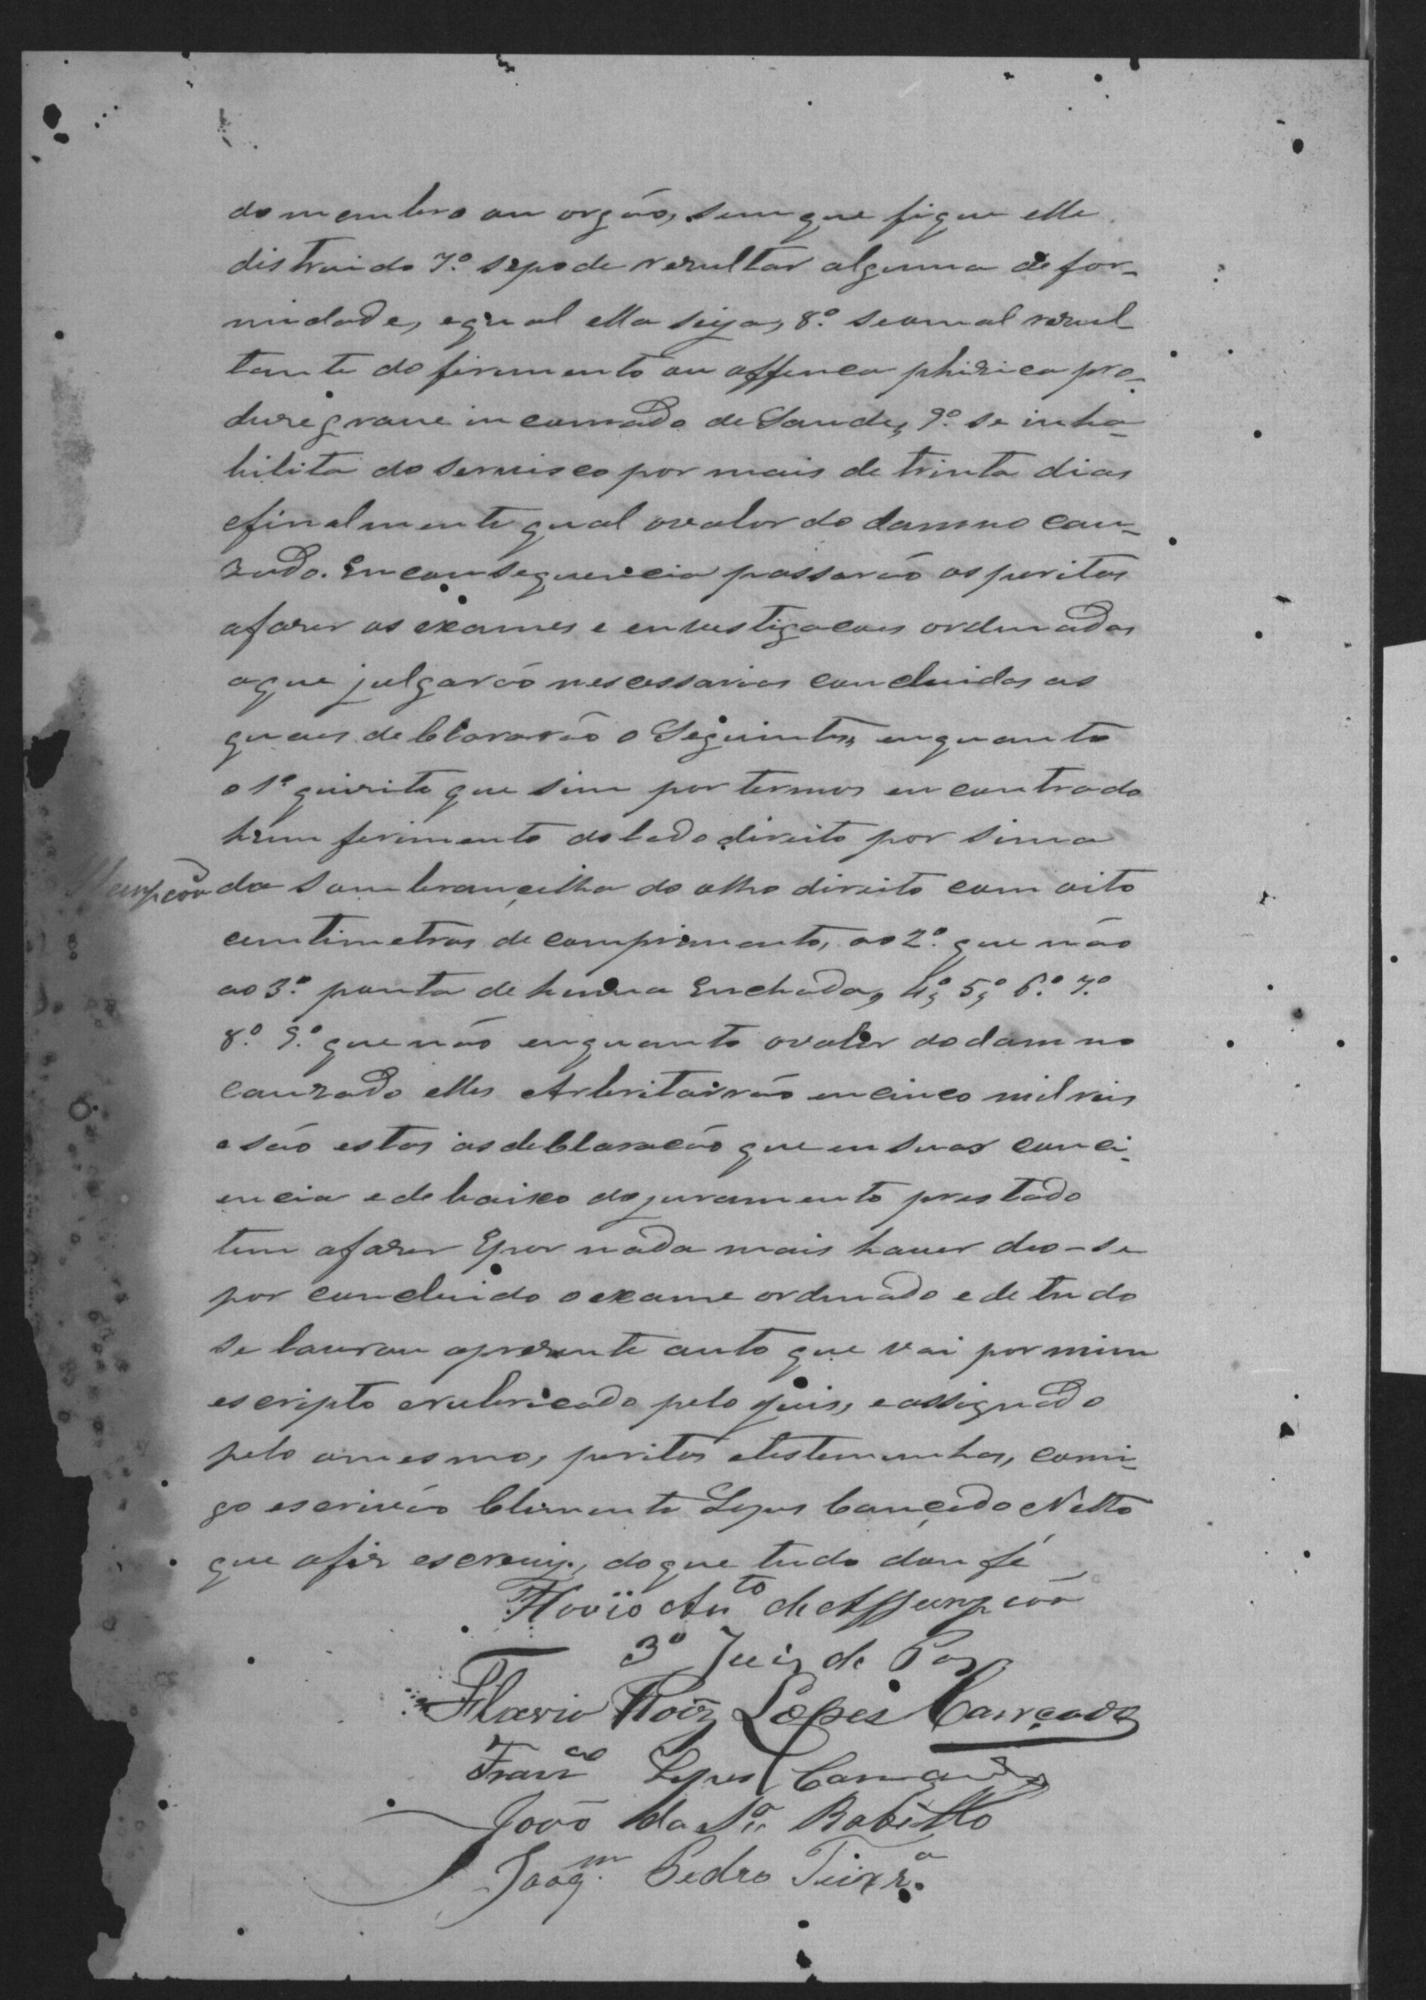 do membro ou orgão, sem que fique elle
distruido 7.º se pode rezultar alguma defor-
midade, e qual ella seja, 8.º se o mal rezul
tante do ferimento ou offenca phizica pro-
duz grave incommado de Saude, 9.º se inha-
bilita do servisco por mais de trinta dias
e finalmente qual o valor do damno cau-
zado. Em consequencia passarão os peritos
a fazer os exames e envestigacoes ordenadas
a que julgarão nescessarias concluidas as
quaes declararão o Seguinte, enquanto
o 1º quizito que sim por termos encontrado
hum ferimento do lado direito por sima
da sombrancilha do olho direito com oito
centimetros de comprimento, ao 2.º que não
ao 3.º ponta de huma Enchada, 4.º, 5.º, 6.º 7.º
8.º 9.º que não enquanto o valor do damno
cauzado elles Arbritarão em cinco mil reis
e são estas as declaracão que em suas conci-
encia e debaixo do juramento prestado
tem a fazer E por nada mais haver deo-se
por concluido o exame ordenado e de tudo
se lavrou o prezente auto que vai por mim
escripto e rubricado pelo juis, e assignado
pelo o mesmo, peritos e testemunhas, comi-
go escrivão Clemente Lopes Cançado Netto
que a fiz escrevy, do que tudo dou fé
Flavio Anto de Assumpcão
3º Juiz de Paz
Flavio Roiz Lopes Cançado
Franco Lopes Cancado
João da Sa Rabello
Joaqm Pedro Teixra